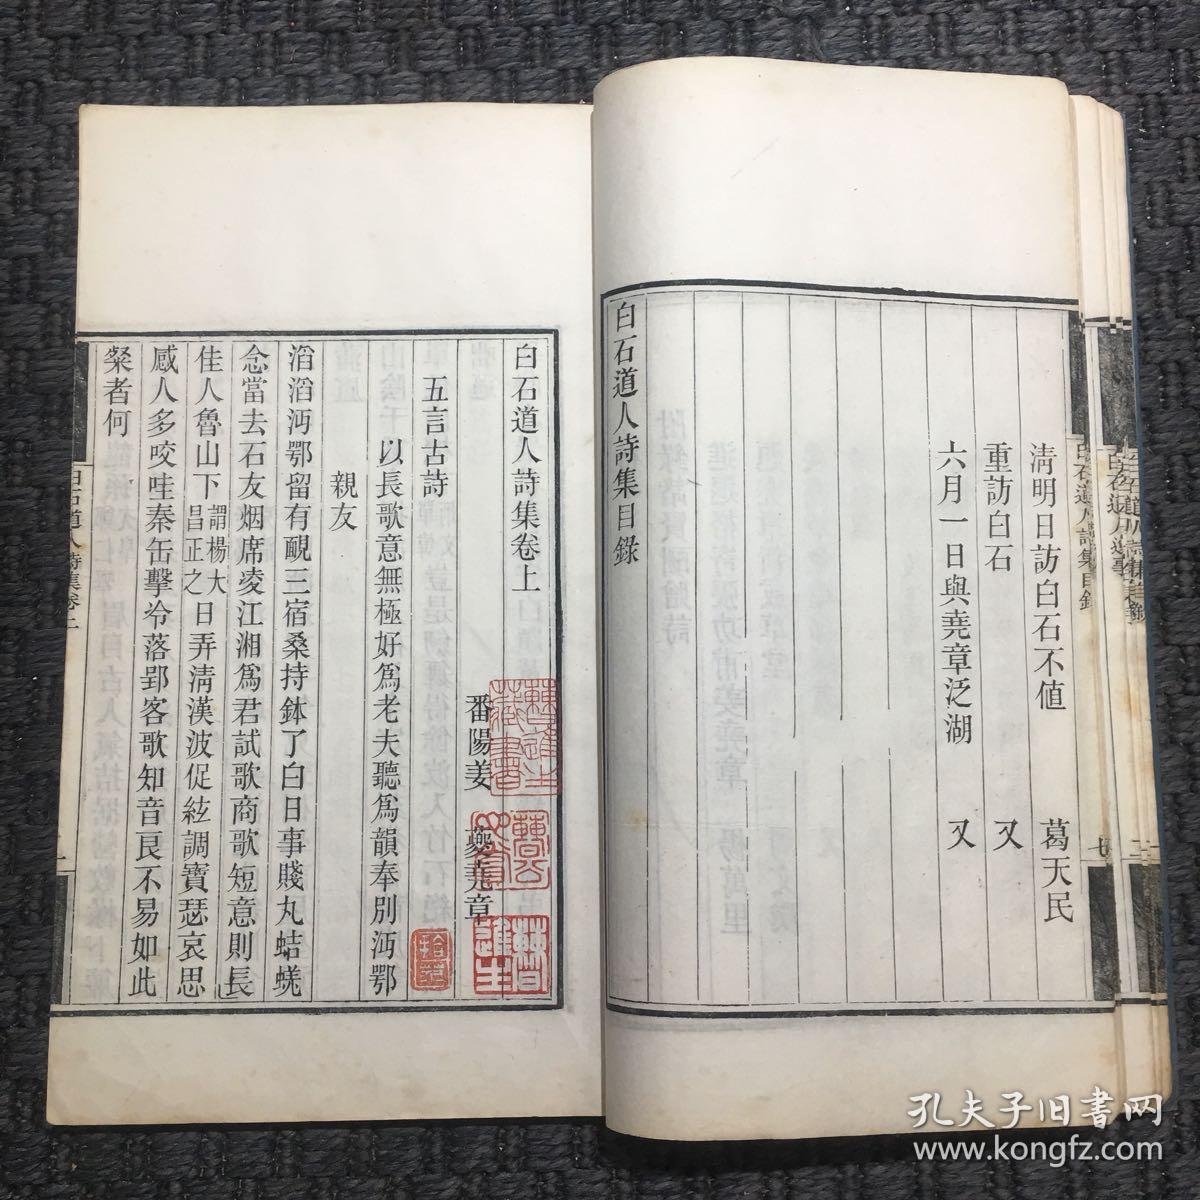 清明日訪白石不值 葛天民
重訪白石 又
六月一日與堯章泛湖 又
白石道人詩集目錄
白石道人詩集目錄
七
白石道人詩集卷上
番陽姜 夔堯章
五言古詩
以長歌意無極好爲老夫聽爲韻奉別沔鄂
親友
滔滔沔鄂留有靦三宿桑持鉢了白日事賤丸蛣蜣
念當去石友烟席凌江湘爲君試歌商歌短意則長
佳人魯山下謂楊大昌正之日弄清漢波促絃調寶瑟哀思
感人多咬哇秦缶擊冷落郢客歌知音良不易如此
粲者何
孔夫子旧书网
www.kongfz.com